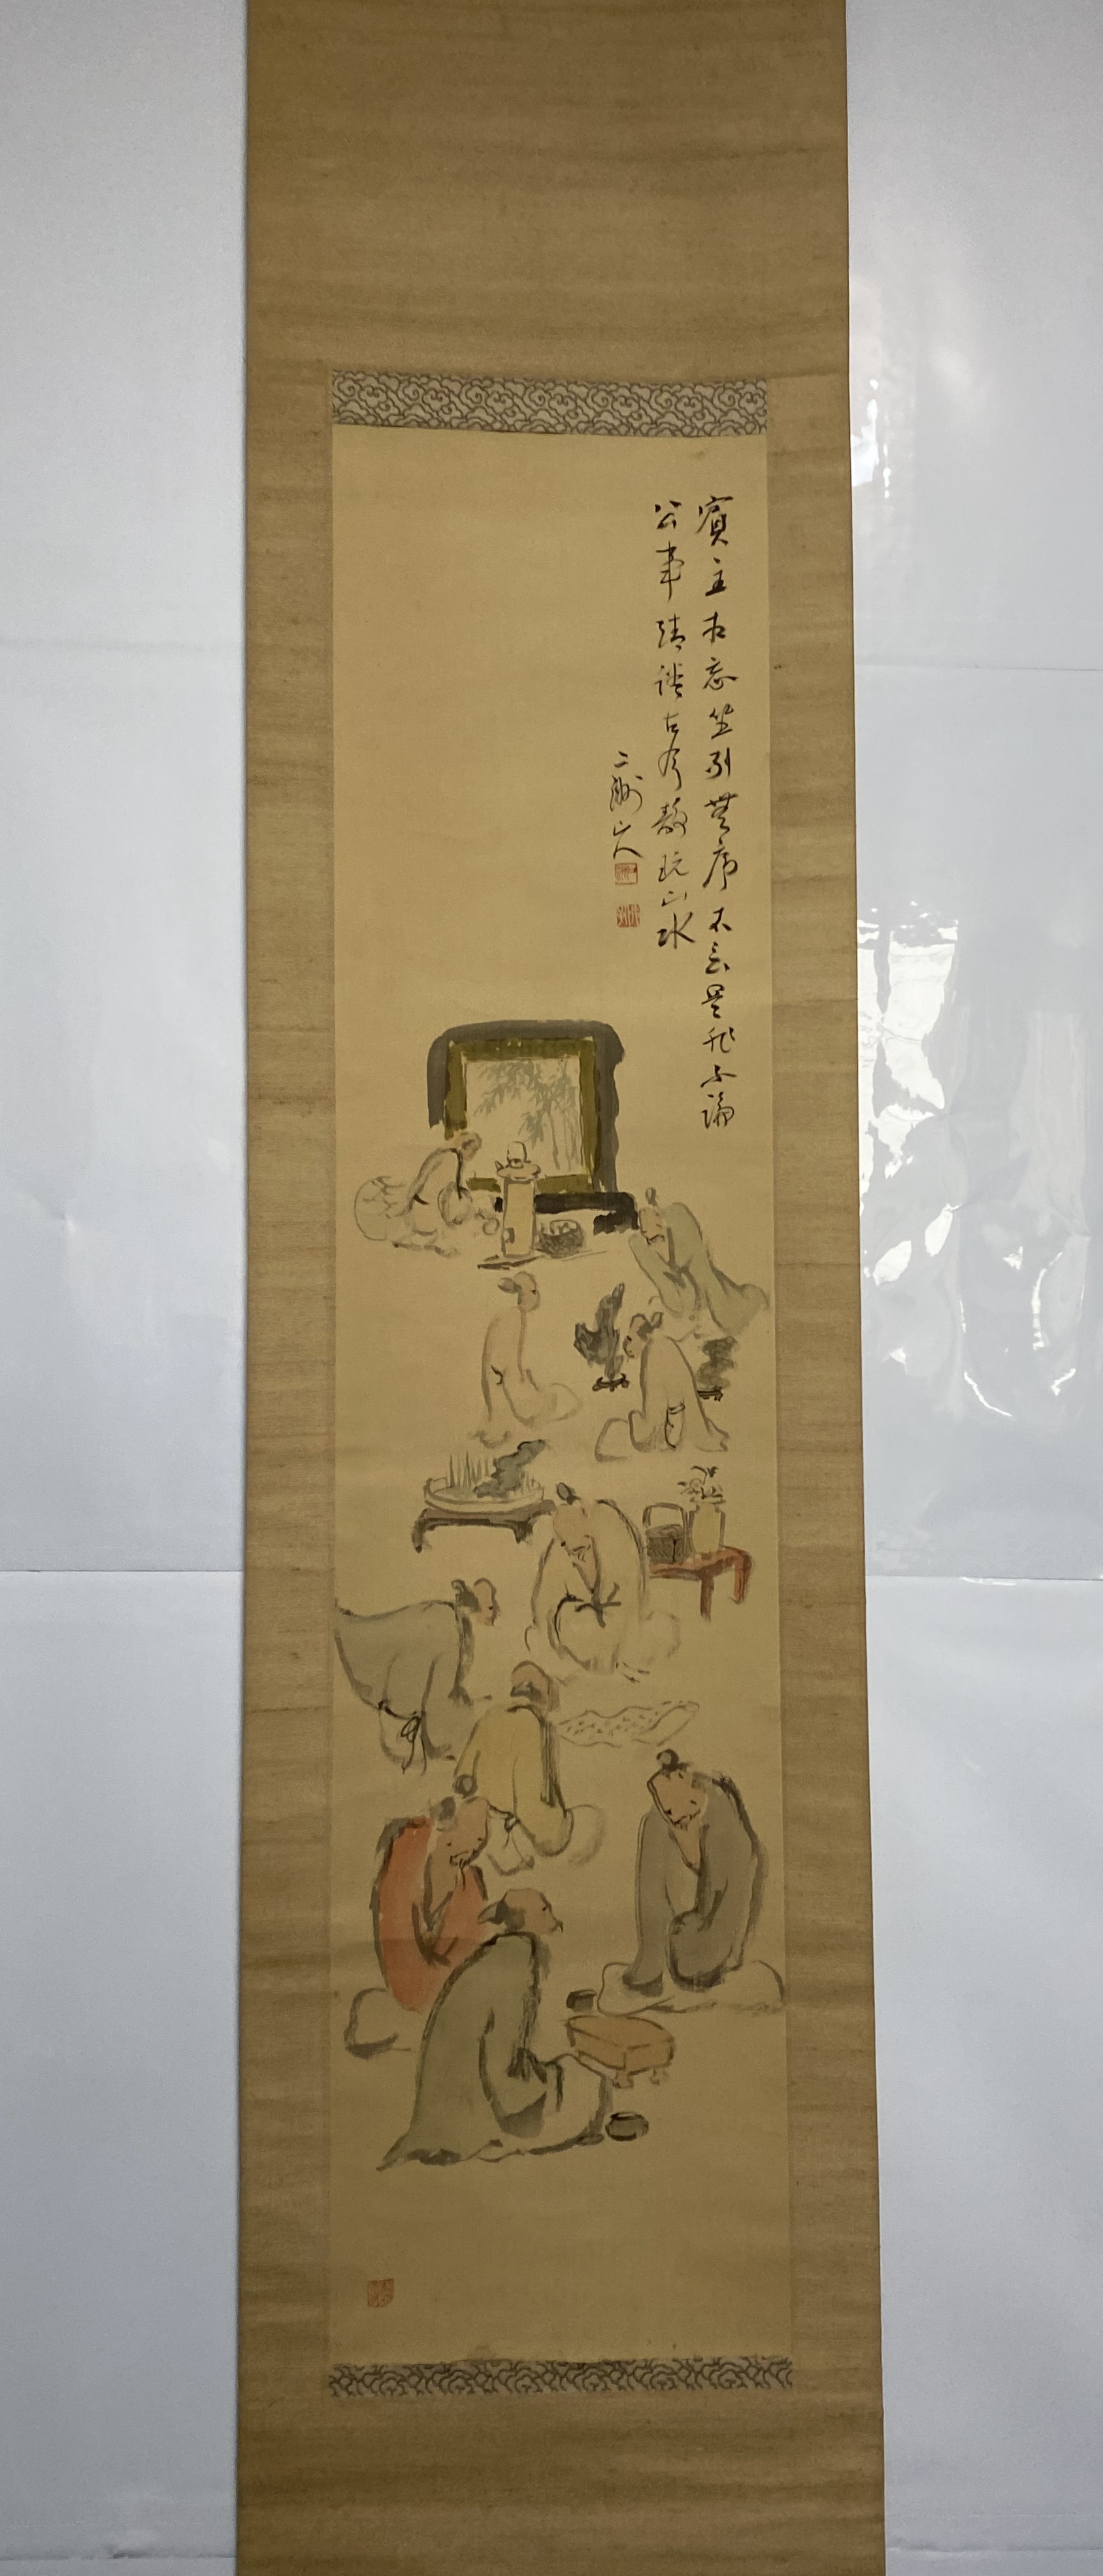 賓主相忘坐列無序不言是非不論
公事清談古今静玩山水
二洲山人